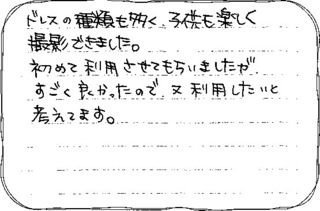 ドレスの種類も多く、子供も楽しく
撮影できました。
初めて利用させてもらいましたが
すごく良かったので、又利用したいと
考えてます。